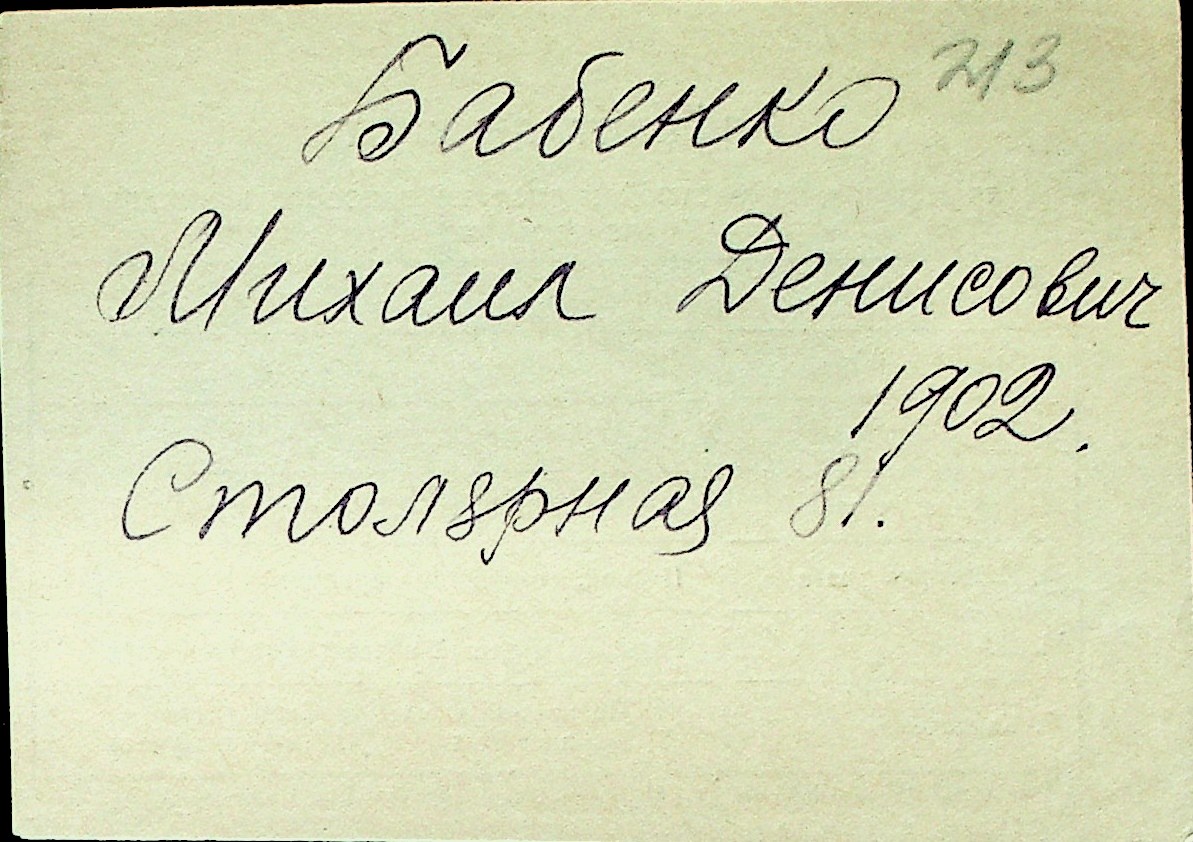 Бабенко 213
Михаил Денисович
1902.
Столярная 81.